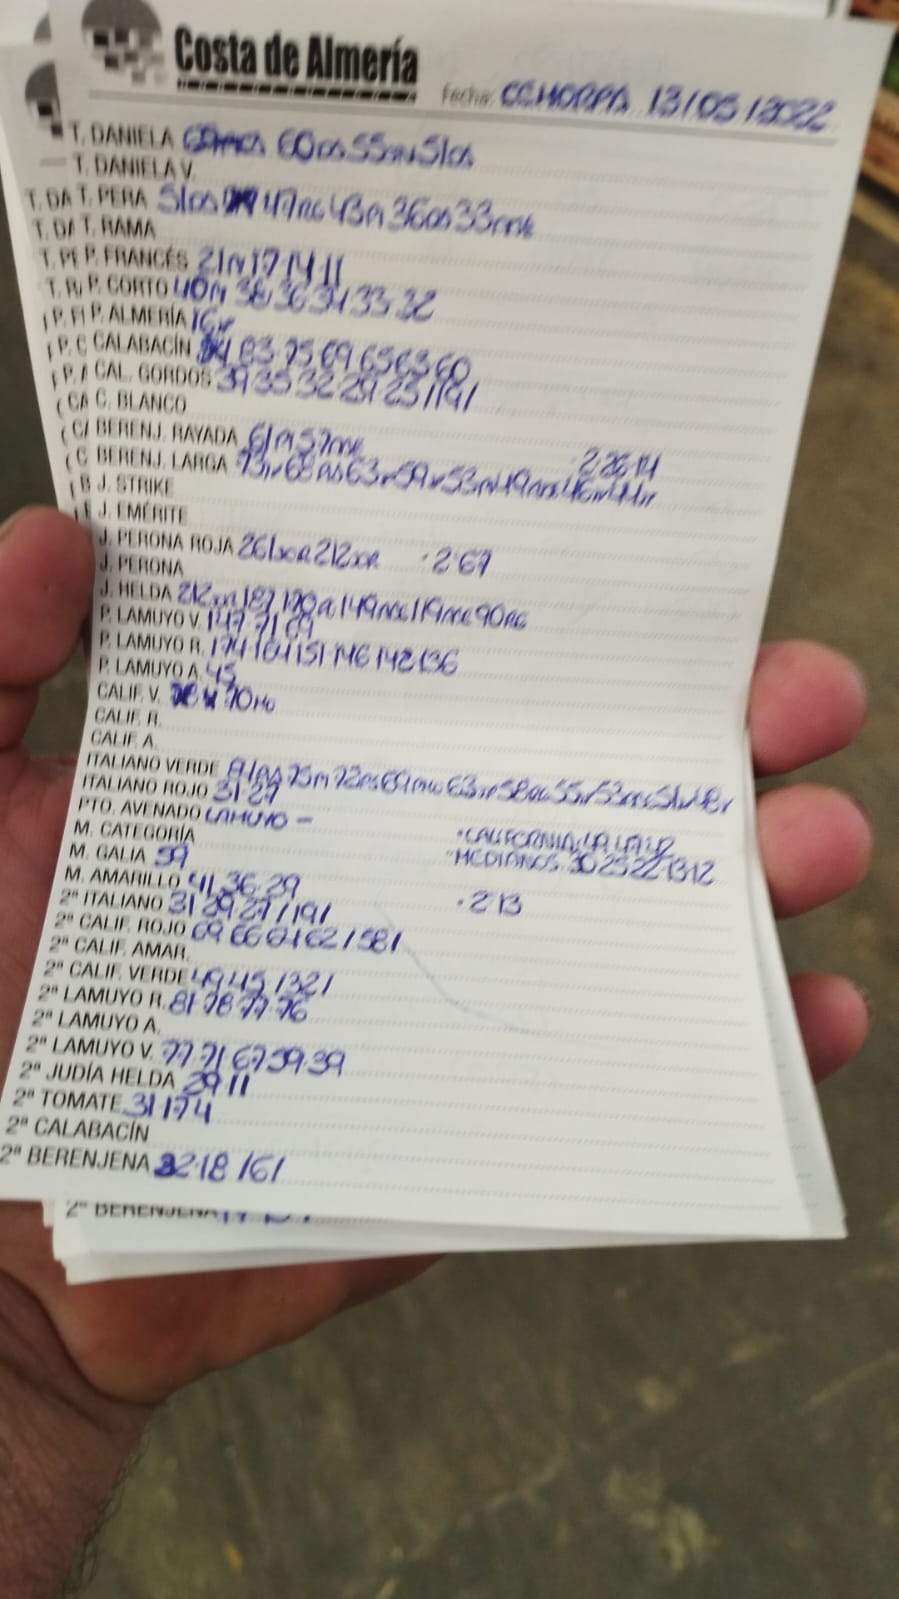 Costa de Almería
Fecha: CEHORPA 13/05/2022
T. DANIELA 60as 55m 51as
T. DANIELA V.
T. DA T. PERA 51as 47 43m 36as 33
T. DA T. RAMA
T. PE P. FRANCÉS 21m 17 14 11
T. RA P. CORTO 40m 38 36 34 33 32
P. FI P. ALMERÍA 16
P. C CALABACÍN 83 75 69 65 63 60
P. A CAL. GORDOS 39 35 32 29 23/19/
CA C. BLANCO
CA BERENJ. RAYADA 61m 57
2ª 26 14
C BERENJ. LARGA 73 68as 63 59 53m 49 46 44
B J. STRIKE
E J. EMÉRITE
J. PERONA ROJA 261 212 · 2ª 67
J. PERONA
J. HELDA 212 187 170 149 119 90
P. LAMUYO V. 147 71 69
P. LAMUYO R. 174 164 151 146 142 136
P. LAMUYO A. 45
CALIF. V. 70
CALIF. R.
CALIF. A.
ITALIANO VERDE 75m 72as 69 63 58 55 53 51 48
ITALIANO ROJO 31 27
PTO. AVENADO LAMUYO -
M. CATEGORÍA
· CALIFORNIA
M. GALIA 59
· MEDIANOS 30 25 22 13 12
M. AMARILLO 41 36 29
2ª ITALIANO 31 29 27/19/ · 2ª 13
2ª CALIF. ROJO 69 66 64 62/58/
2ª CALIF. AMAR.
2ª CALIF. VERDE 49 45/32/
2ª LAMUYO R. 81 78 77 76
2ª LAMUYO A.
2ª LAMUYO V. 77 71 67 59 39
2ª JUDÍA HELDA 29 11
2ª TOMATE 31 17 4
2ª CALABACÍN
2ª BERENJENA 32 18/6/
2ª BERENJENA